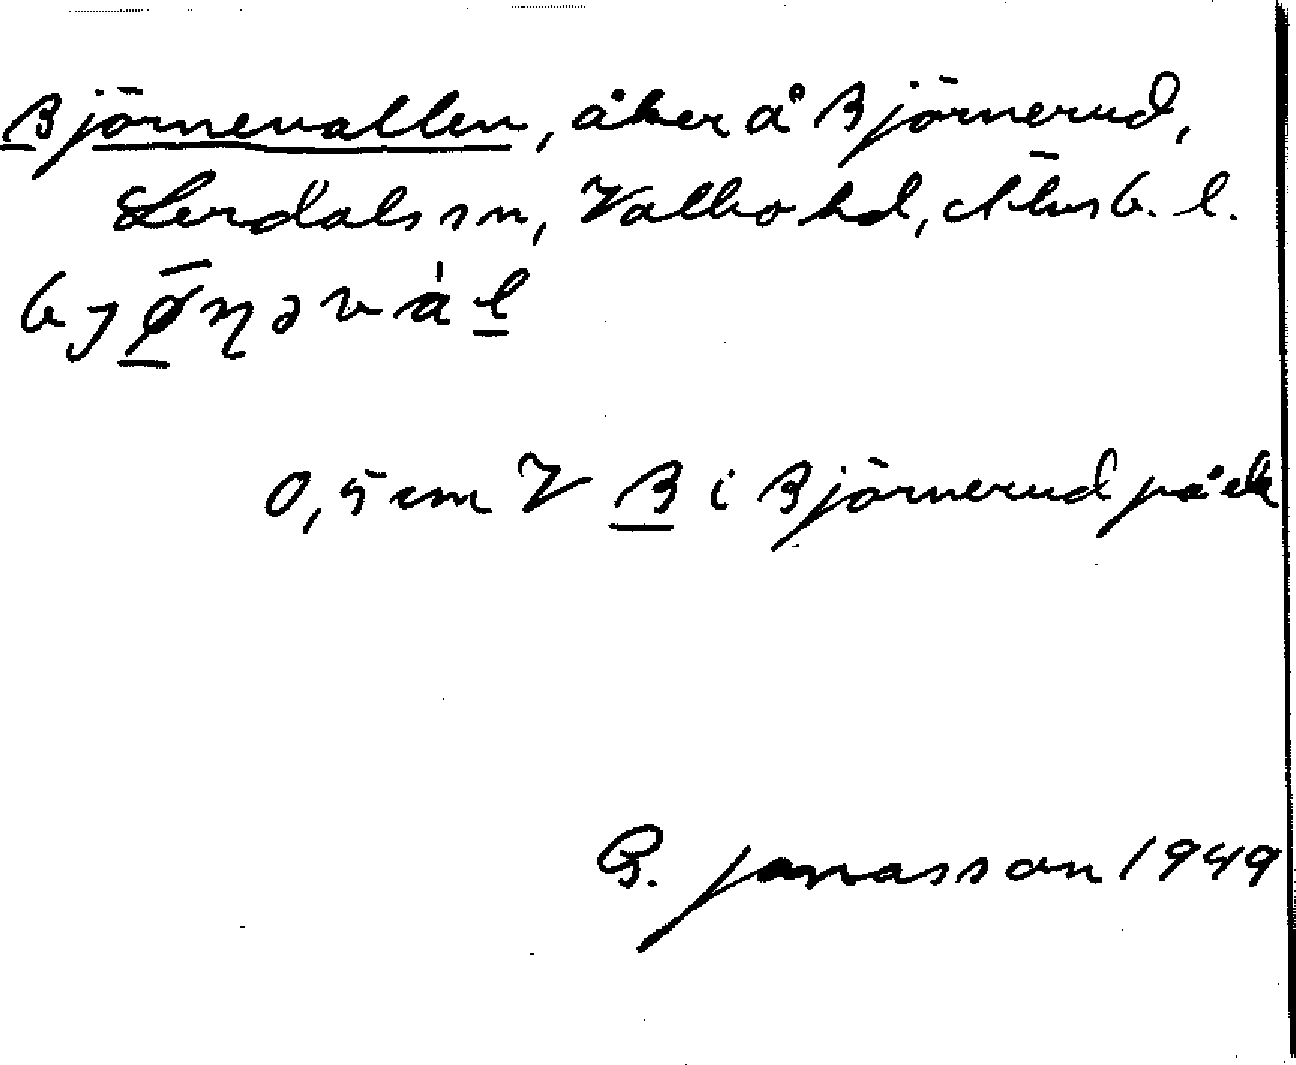 Björnevallen, åker å Björnerud,
Lerdals sn, Valbo hd, Älvsb. l.
bjø̄ɳəvàl
0,5 cm V B i Björnerud på ek
G. Jonasson 1949